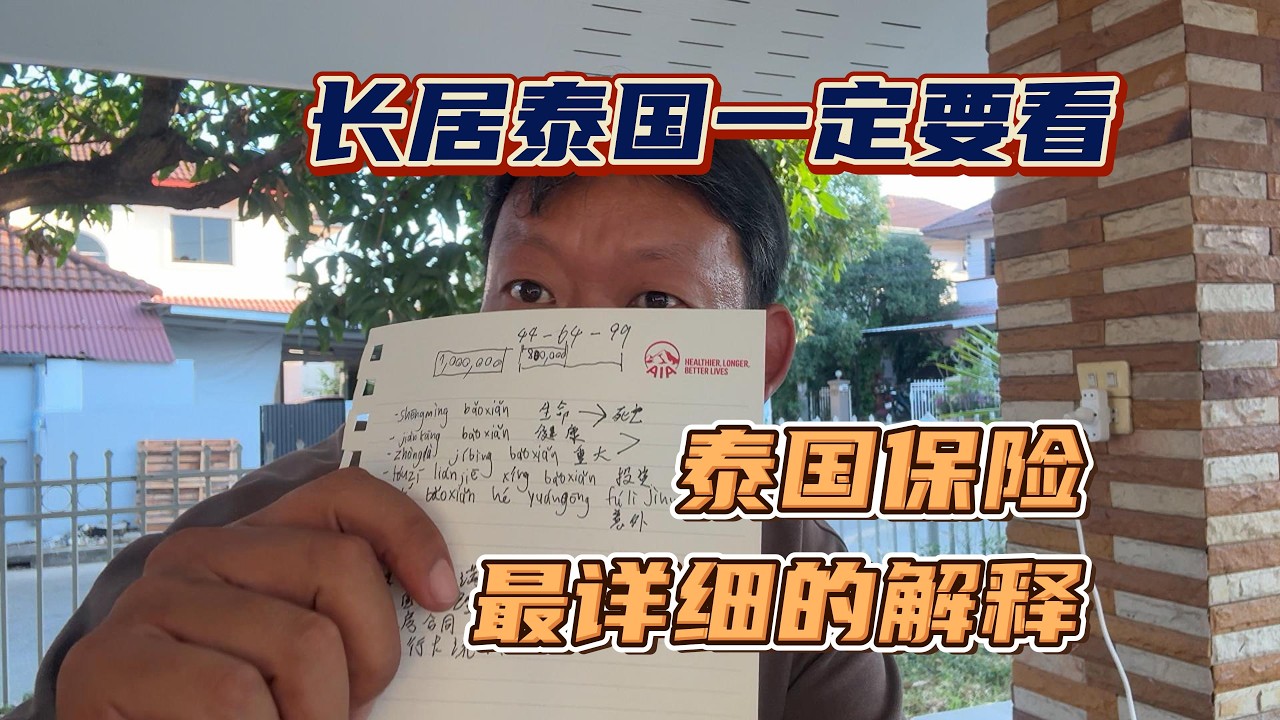 长居泰国一定要看
44-64-99
1,000,000 800,000
AIA
HEALTHIER, LONGER,
BETTER LIVES
-shēngmìng bǎoxiǎn 生命→死亡
-jiànkāng bǎoxiǎn 健康
-zhòngdà jíbìng bǎoxiǎn 重大
-tóuzī liánjiē xíng bǎoxiǎn 投资
bǎoxiǎn hé yuángōng fúlì jīn
意外
泰国保险
最详细的解释
合同
行卡